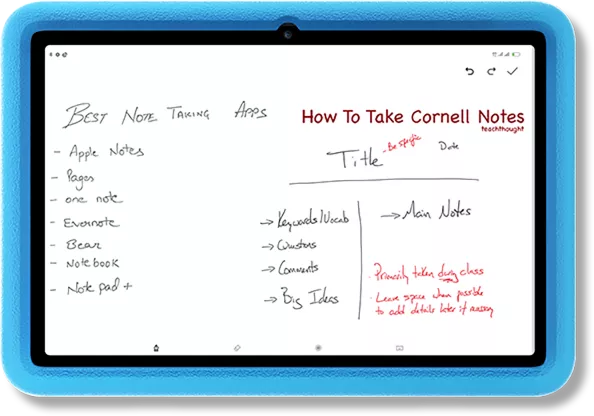 BEST NOTE TAKING APPS
- Apple Notes
- Pages
- one note
- Evernote
- Bear
- Notebook
- Note pad +
How To Take Cornell Notes
teachthought
Title
- Be specific
Date
→ Keywords/Vocab
→ Questions
→ Comments
→ Big Ideas
→ Main Notes
· Primarily taken during class
· Leave space when possible
to add details later if necessary